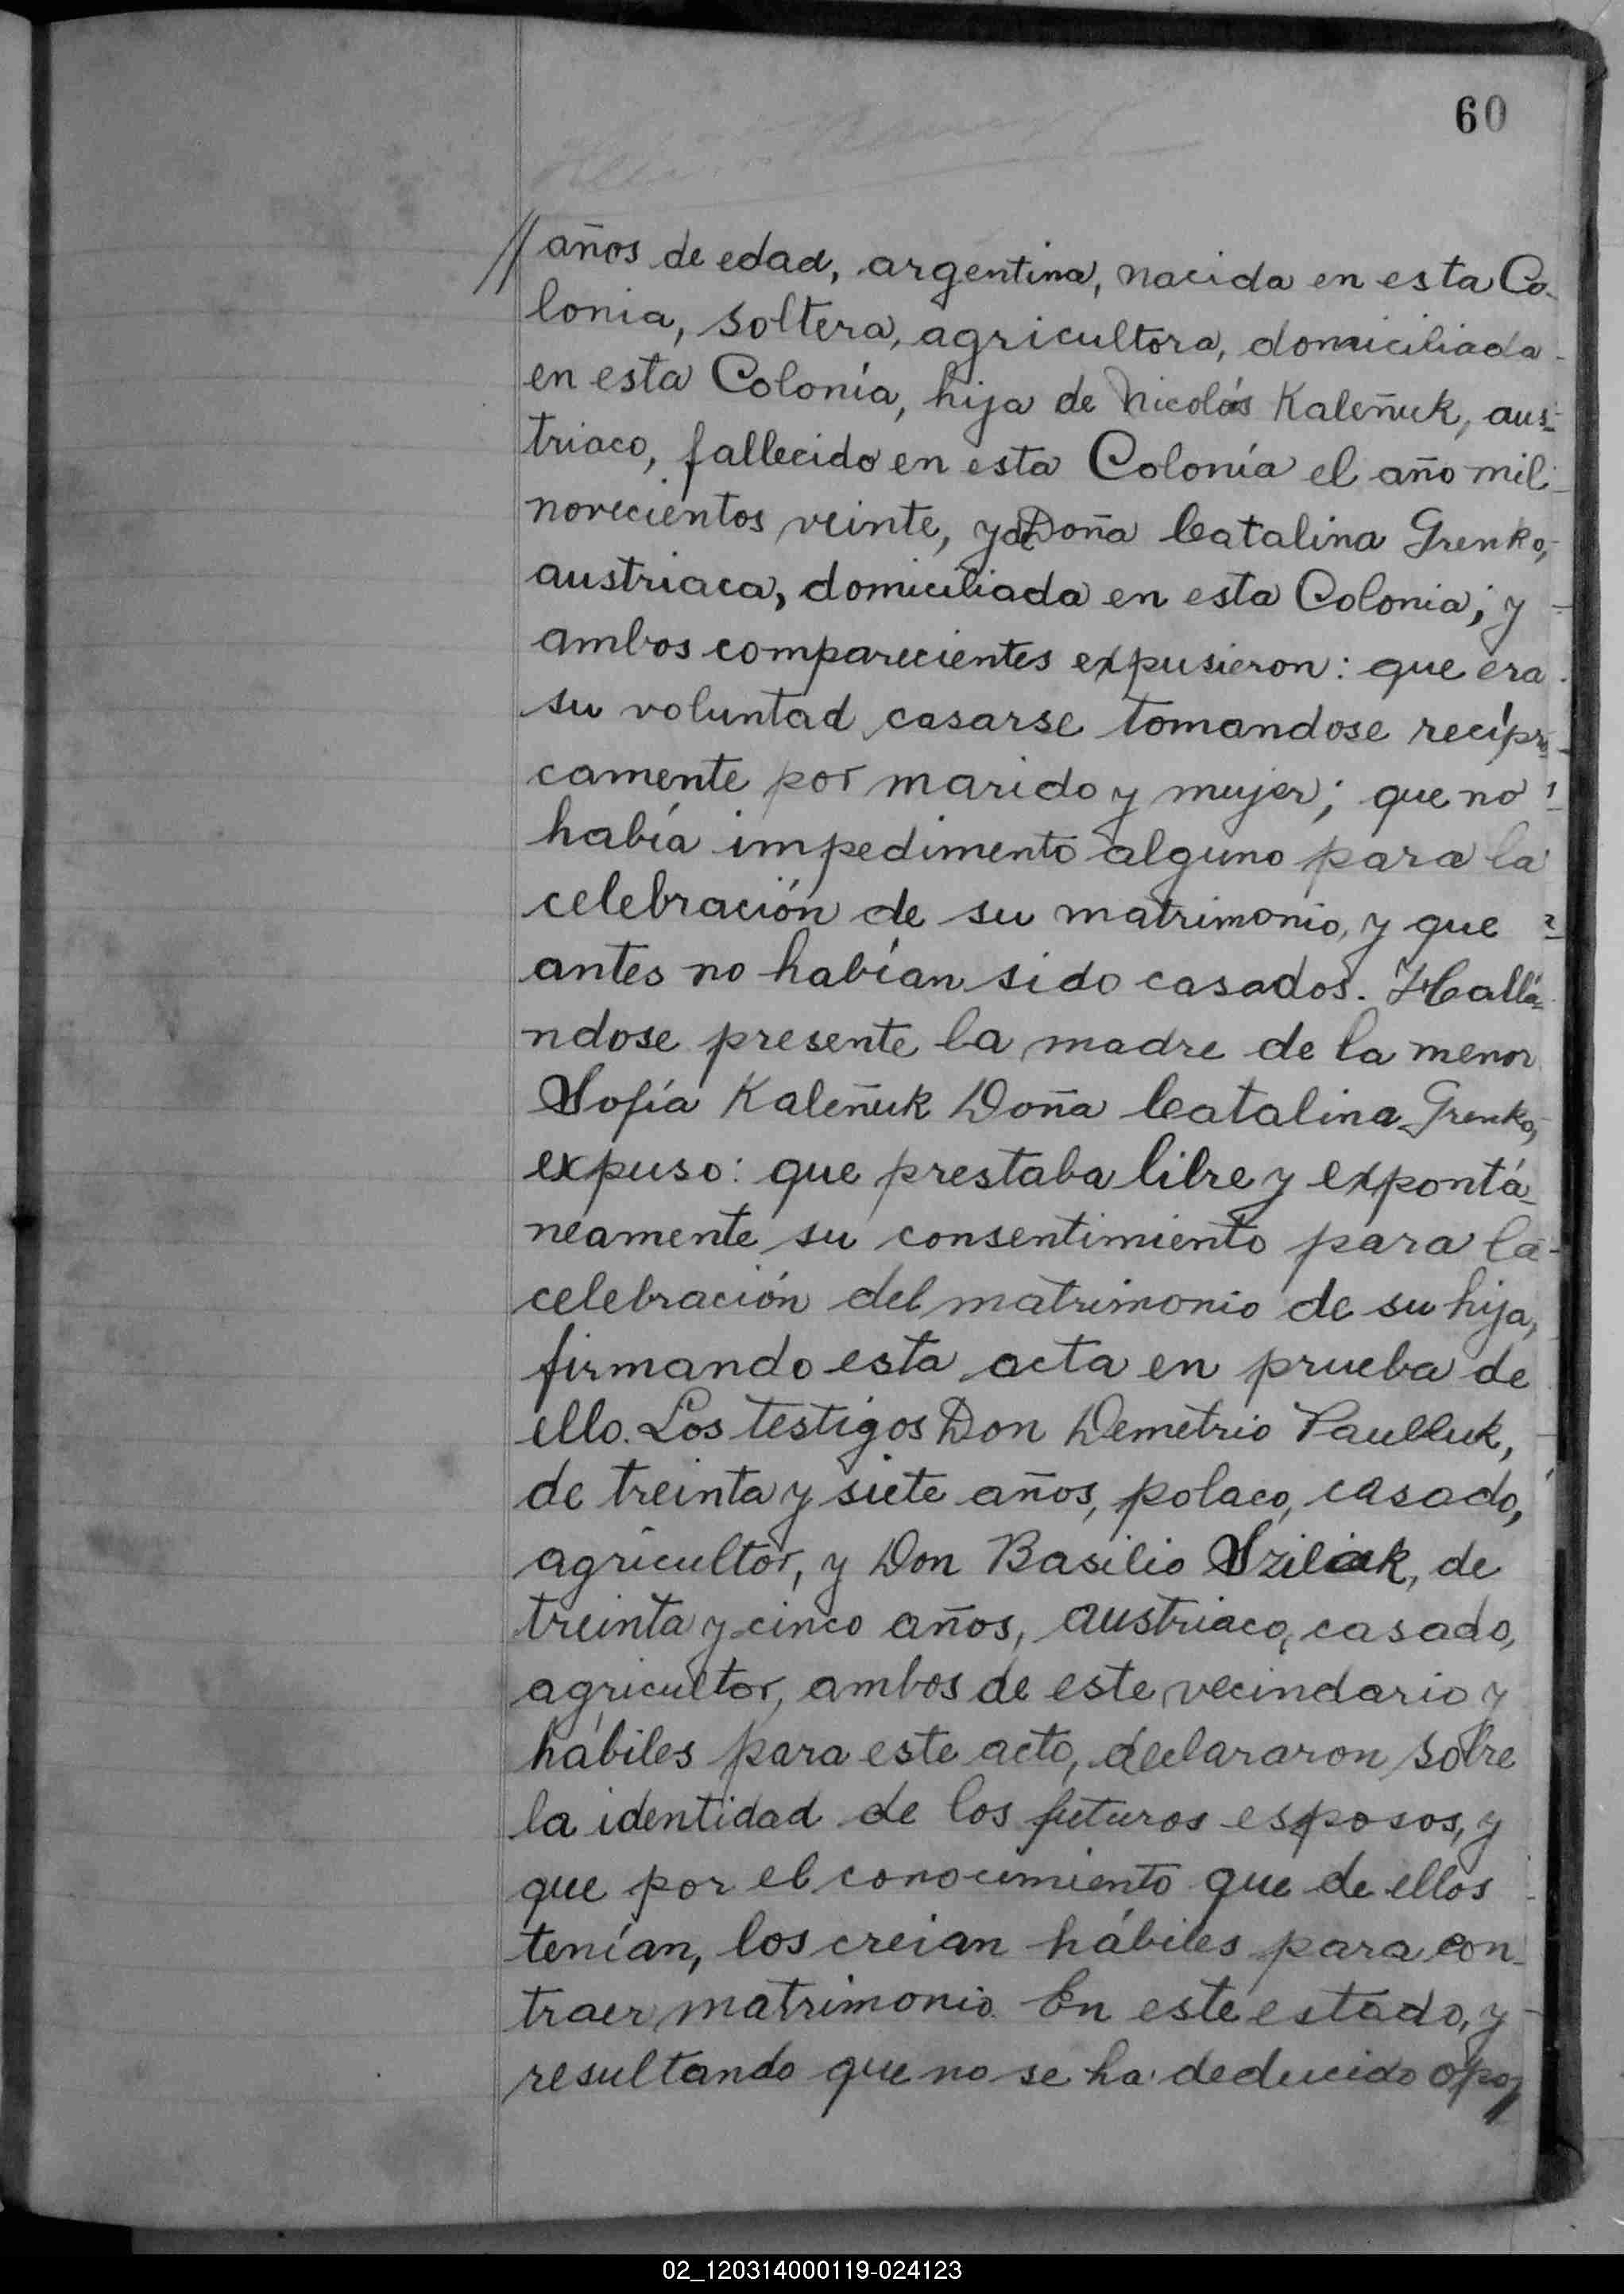 60
// años de edad, argentina, nacida en esta Co-
lonia, soltera, agricultora, domiciliada
en esta Colonía, hija de Nicolás Kaleñuk, aus-
triaco, fallecido en esta Colonía el año mil
novecientos veinte, y de Doña Catalina Grenko,
austriaca, domiciliada en esta Colonia; y
ambos comparecientes expusieron: que era
su voluntad casarse tomandose recípro-
camente por marido y mujer; que no
había impedimento alguno para la
celebración de su matrimonio, y que
antes no habían sido casados. Hallá-
ndose presente la madre de la menor
Sofía Kaleñuk Doña Catalina Grenko,
expuso: que prestaba libre y expontá-
neamente su consentimiento para la
celebración del matrimonio de su hija,
firmando esta acta en prueba de
ello. Los testigos Don Demetrio Paulluk,
de treinta y siete años, polaco, casado,
agricultor, y Don Basilio Sziliak, de
treinta y cinco años, austriaco, casado,
agricultor, ambos de este vecindario y
hábiles para este acto, declararon sobre
la identidad de los futuros esposos, y
que por el conocimiento que de ellos
tenían, los creian hábiles para con-
traer matrimonio. En este estado, y
resultando que no se ha deducido opo//
02_120314000119-024123